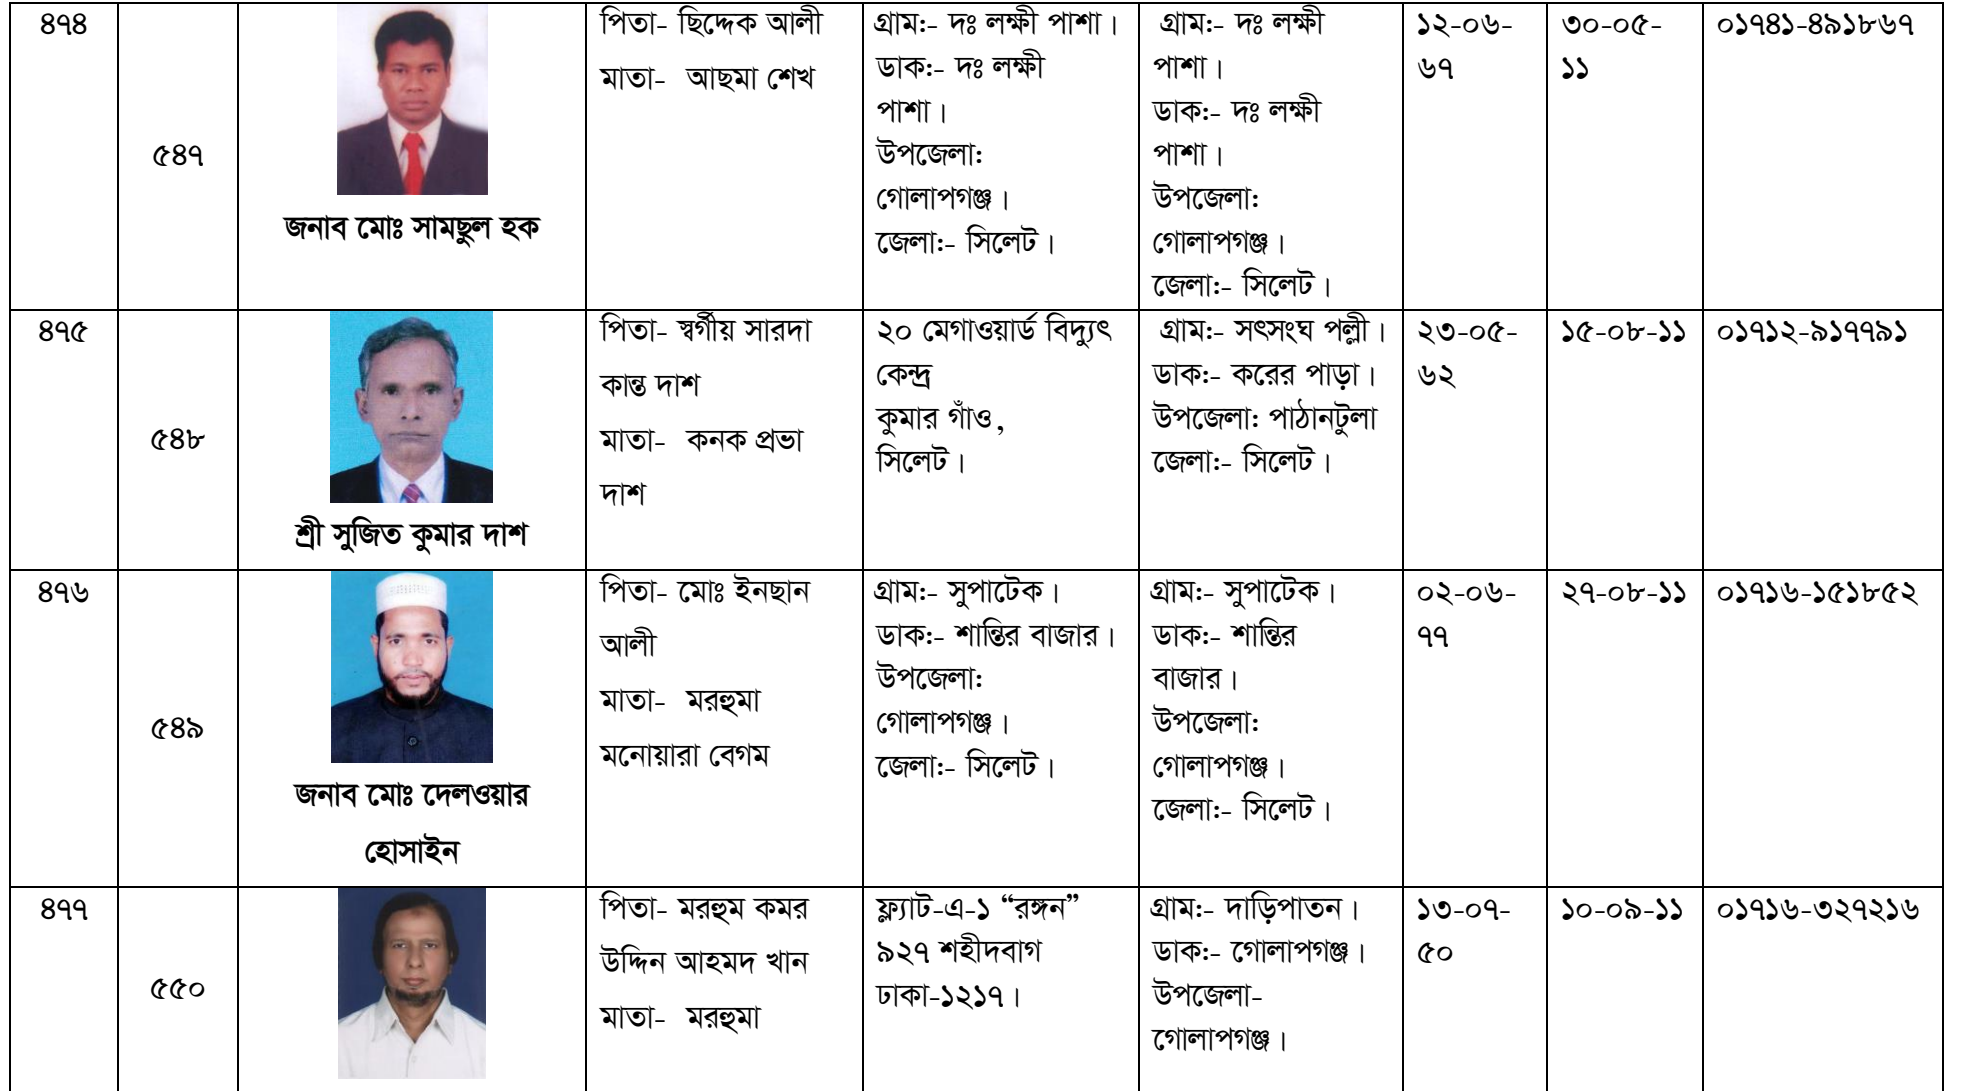 ৪৭৪
৫৪৭
জনাব মোঃ সামছুল হক
পিতা- ছিদ্দেক আলী
মাতা- আছমা শেখ
গ্রাম:- দঃ লক্ষী পাশা।
ডাক:- দঃ লক্ষী
পাশা।
উপজেলা:
গোলাপগঞ্জ।
জেলা:- সিলেট।
গ্রাম:- দঃ লক্ষী
পাশা।
ডাক:- দঃ লক্ষী
পাশা।
উপজেলা:
গোলাপগঞ্জ।
জেলা:- সিলেট।
১২-০৬-
৬৭
৩০-০৫-
১১
০১৭৪১-৪৯১৮৬৭
৪৭৫
৫৪৮
শ্রী সুজিত কুমার দাশ
পিতা- স্বর্গীয় সারদা
কান্ত দাশ
মাতা- কনক প্রভা
দাশ
২০ মেগাওয়ার্ড বিদ্যুৎ
কেন্দ্র
কুমার গাঁও,
সিলেট।
গ্রাম:- সৎসংঘ পল্লী।
ডাক:- করের পাড়া।
উপজেলা: পাঠানটুলা
জেলা:- সিলেট।
২৩-০৫-
৬২
১৫-০৮-১১
০১৭১২-৯১৭৭৯১
৪৭৬
৫৪৯
জনাব মোঃ দেলওয়ার
হোসাইন
পিতা- মোঃ ইনছান
আলী
মাতা- মরহুমা
মনোয়ারা বেগম
গ্রাম:- সুপাটেক।
ডাক:- শান্তির বাজার।
উপজেলা:
গোলাপগঞ্জ।
জেলা:- সিলেট।
গ্রাম:- সুপাটেক।
ডাক:- শান্তির
বাজার।
উপজেলা:
গোলাপগঞ্জ।
জেলা:- সিলেট।
০২-০৬-
৭৭
২৭-০৮-১১
০১৭১৬-১৫১৮৫২
৪৭৭
৫৫০
পিতা- মরহুম কমর
উদ্দিন আহমদ খান
মাতা- মরহুমা
ফ্ল্যাট-এ-১ “রঙ্গন”
৯২৭ শহীদবাগ
ঢাকা-১২১৭।
গ্রাম:- দাড়িপাতন।
ডাক:- গোলাপগঞ্জ।
উপজেলা-
গোলাপগঞ্জ।
১৩-০৭-
৫০
১০-০৯-১১
০১৭১৬-৩২৭২১৬